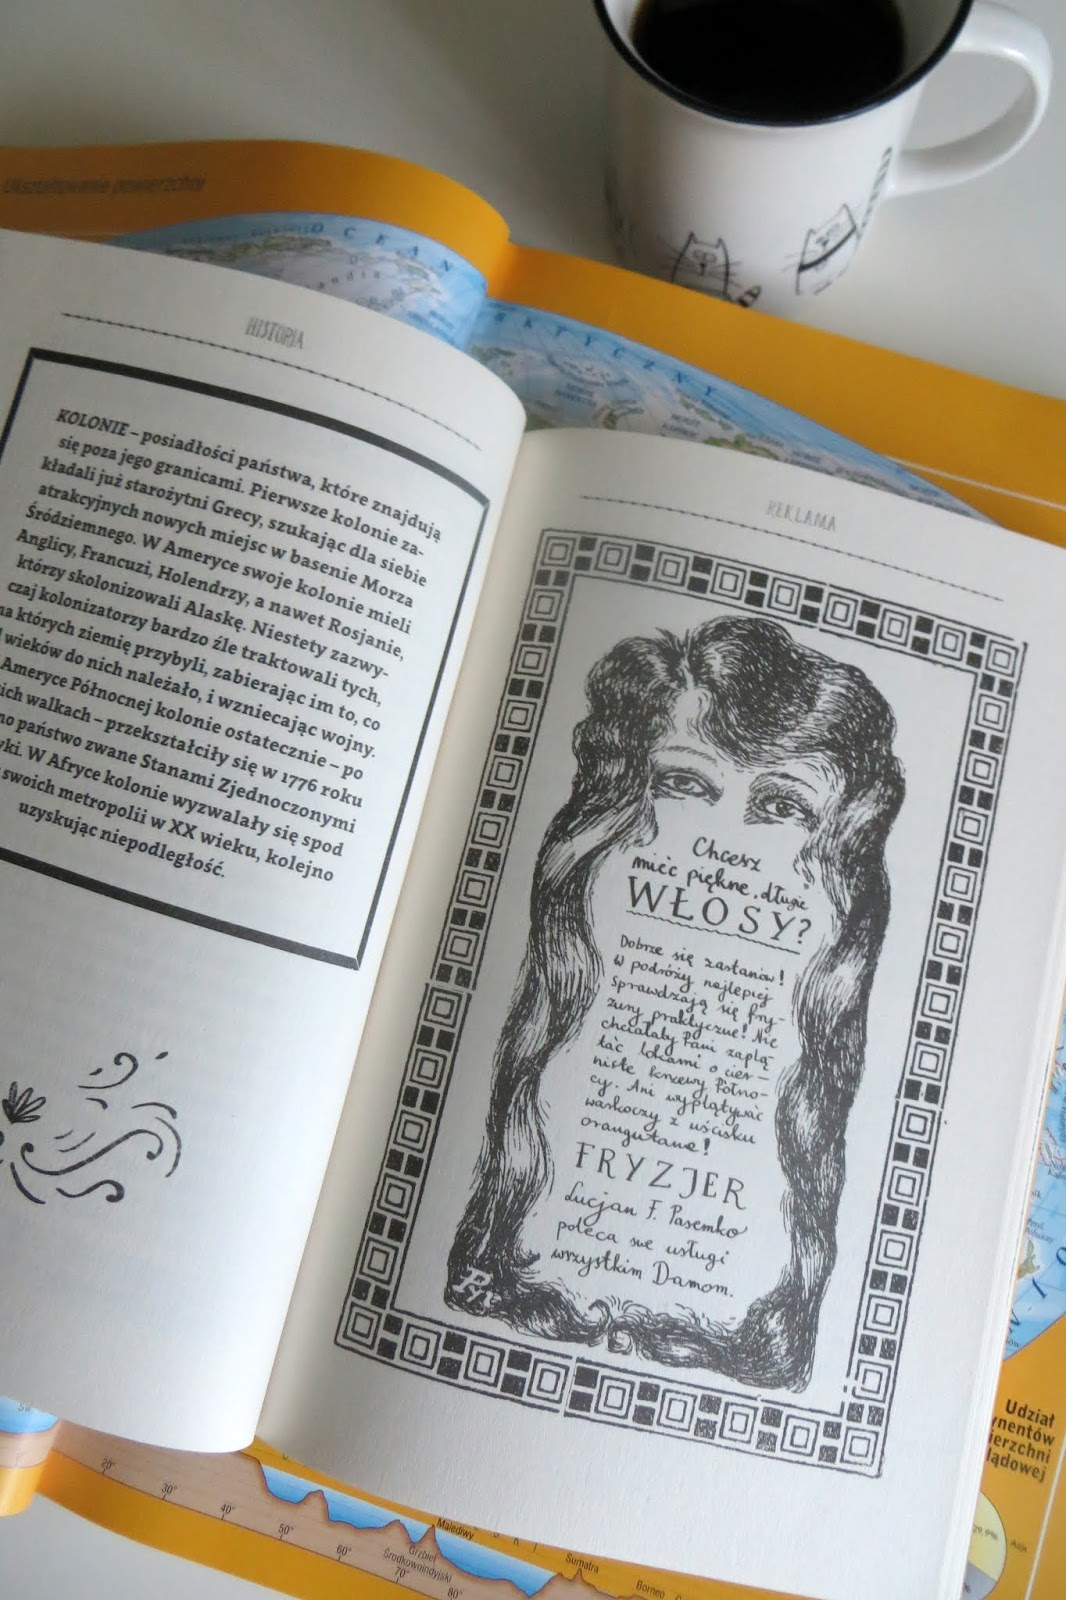 Ukształtowanie powierzchni
OCEAN
HISTORIA
KOLONIE – posiadłości państwa, które znajdują
się poza jego granicami. Pierwsze kolonie za-
kładali już starożytni Grecy, szukając dla siebie
atrakcyjnych nowych miejsc w basenie Morza
Śródziemnego. W Ameryce swoje kolonie mieli
Anglicy, Francuzi, Holendrzy, a nawet Rosjanie,
którzy skolonizowali Alaskę. Niestety zazwy-
czaj kolonizatorzy bardzo źle traktowali tych,
na których ziemię przybyli, zabierając im to, co
wieków do nich należało, i wzniecając wojny.
Ameryce Północnej kolonie ostatecznie – po
ich walkach – przekształciły się w 1776 roku
no państwo zwane Stanami Zjednoczonymi
yki. W Afryce kolonie wyzwalały się spod
swoich metropolii w XX wieku, kolejno
uzyskując niepodległość.
REKLAMA
Chcesz
mieć piękne, długie
WŁOSY?
Dobrze się zastanów!
W podróży najlepiej
sprawdzają się fry-
zury praktyczne! Nie
chciałaby Pani zaplą
tać lokami o cier-
niste krzewy Półno-
cy. Ani wyplątywać
warkoczy z uścisku
orangutana!
FRYZJER
Lucjan F. Pasemko
poleca swe usługi
wszystkim Damom.
Udział
ynentów
ierzchni
lądowej
29,9%
Azja
20°
30°
40°
50°
60°
70°
80°
Malediwy
Grzbiet
Środkowoindyjski
Sumatra
Borneo